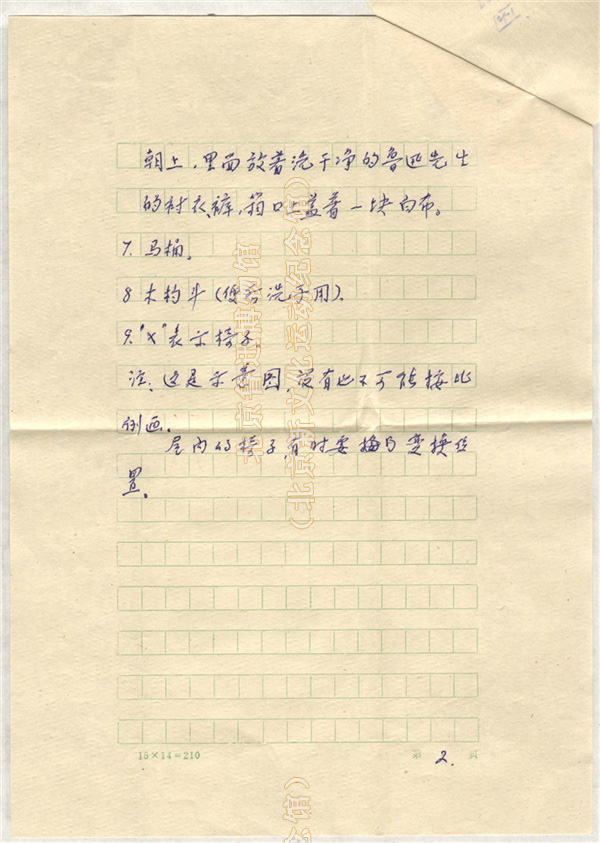 朝上，里面放着洗干净的鲁迅先生
的衬衣、裤，箱口上盖着一块白布。
7. 马桶。
8 木杓斗（便后洗手用）。
9. "×"表示椅子。
注：这是示意图，没有也不可能按比
例画。
屋内的椅子，有时要搞 变换位
置。
15×14=210
第 2. 页
北京鲁迅博物馆
（北京新文化运动纪念馆）
念馆）